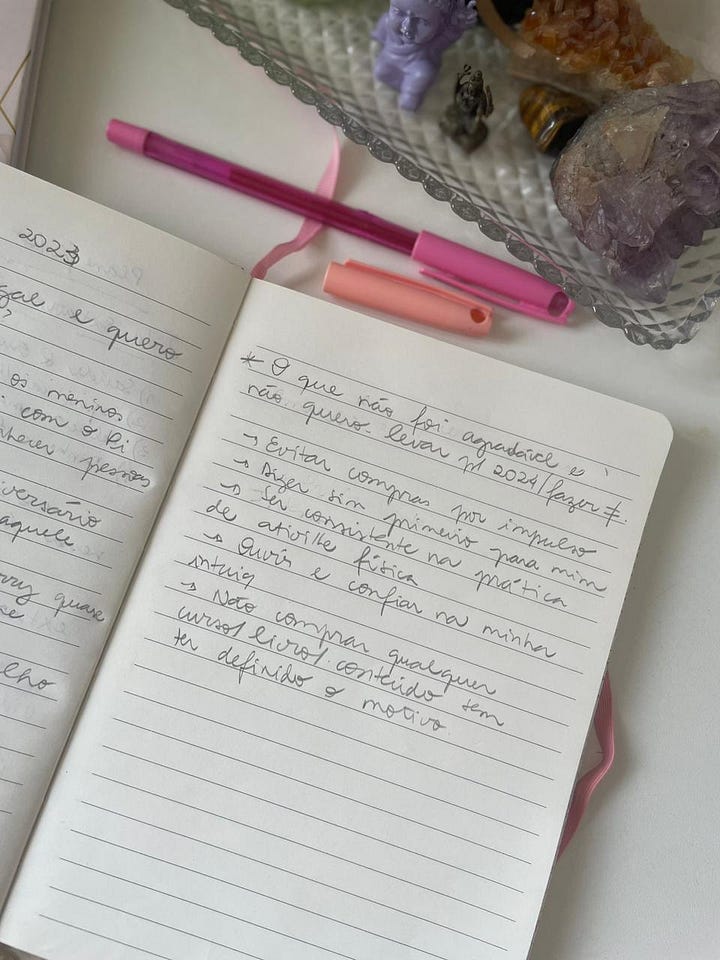 2023
e quero
os meninos
com o Ri
pessoas
aquele
quase
* O que não foi agradável e
não quero levar p/ 2024/fazer ≠.
→ Evitar compras por impulso
→ Dizer sim primeiro para mim
→ Ser consistente na prática
de ativ física
→ Ouvir e confiar na minha
intuiç
→ Não comprar qualquer
curso/livro/conteúdo sem
ter definido o motivo.